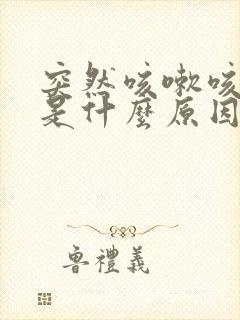 突然咳嗽咳
是什麼原因
魯禮義